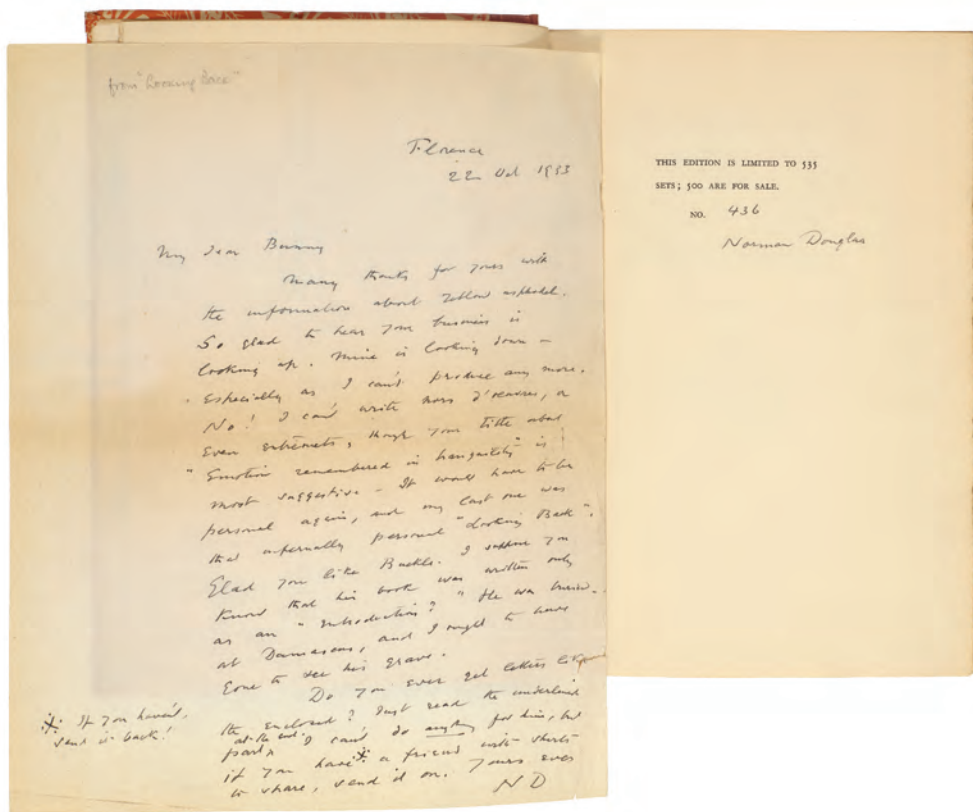 from "Looking Back"
Florence
22 Oct 1933
My dear Bunny
Many thanks for yours with
the information about yellow asphodel.
So glad to hear your business is
looking up. Mine is looking down –
especially as I can't produce any more.
No! I can't write hors d'oeuvres, or
even entremets, though your title about
"Emotion remembered in" is
most suggestive – It would have to be
personal again, and my last one was
that infernally personal "Looking Back".
Glad you like Buckle. I suppose you
know that his book was written only
as an "Introduction"? He was buried
at Damascus, and I ought to have
gone to see his grave.
Do you ever get letters like
the enclosed? Just read the underlined
part at the end. I can't do anything for him, but
if you have※ a friend with shirts
to share, send it on. Yours ever
ND
※ If you haven't,
send it back!
THIS EDITION IS LIMITED TO 535
SETS; 500 ARE FOR SALE.
NO. 436
Norman Douglas